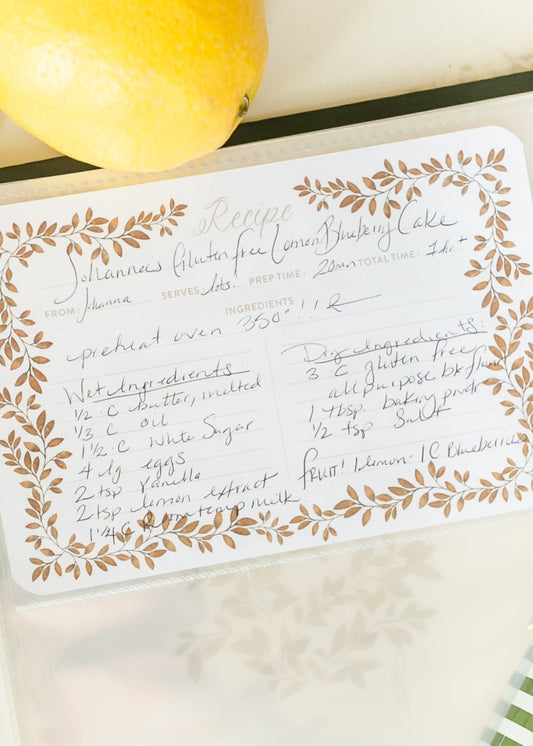 Recipe
Johanna's Gluten free Lemon Blueberry Cake
FROM: Johanna SERVES: lots. PREP TIME: 20min TOTAL TIME: 1 hr +
INGREDIENTS
preheat oven 350° !!
Wet Ingredients
1/2 C butter, melted
1/3 C oil
1 1/2 C White Sugar
4 lg eggs
2 tsp Vanilla
2 tsp lemon extract
1 1/4 C milk
Dry Ingredients:
3 C gluten free
all purpose bk flour
1 tbsp baking pwdr
1/2 tsp Salt
FRUIT! 1 lemon - 1 C Blueberries